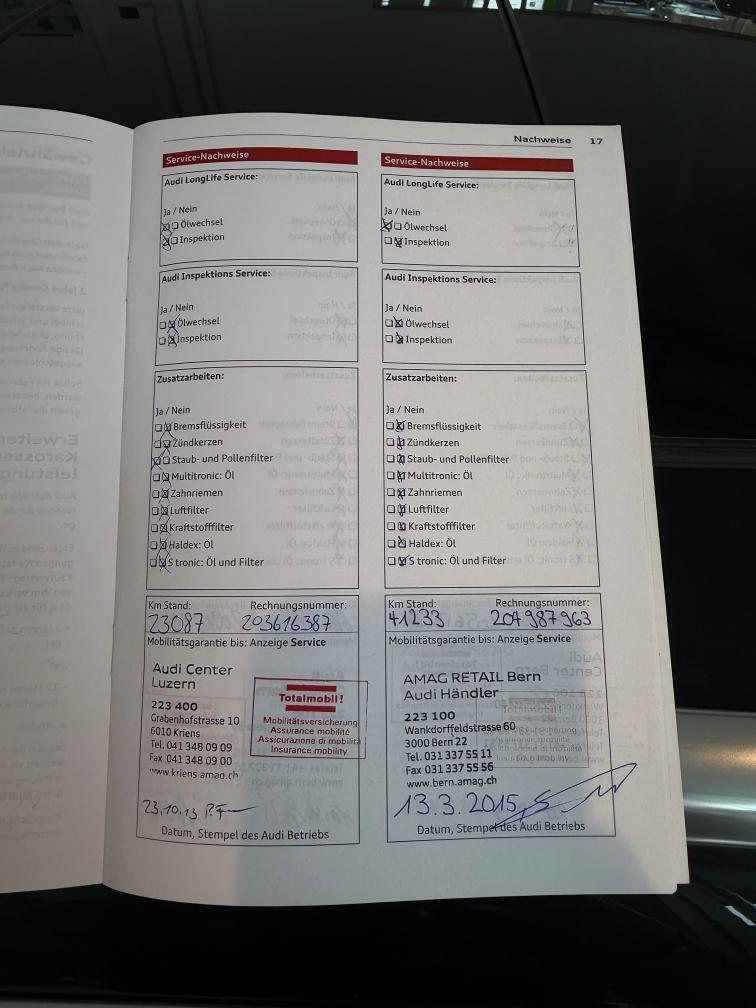 Nachweise 17
Service-Nachweise
Audi LongLife Service:
Ja / Nein
Ölwechsel
Inspektion
Audi Inspektions Service:
Ja / Nein
Ölwechsel
Inspektion
Zusatzarbeiten:
Ja / Nein
Bremsflüssigkeit
Zündkerzen
Staub- und Pollenfilter
Multitronic: Öl
Zahnriemen
Luftfilter
Kraftstofffilter
Haldex: Öl
S tronic: Öl und Filter
Km Stand: Rechnungsnummer:
23087 203616387
Mobilitätsgarantie bis: Anzeige Service
Audi Center
Luzern
223 400
Grabenhofstrasse 10
6010 Kriens
Tel. 041 348 09 09
Fax 041 348 09 00
www.kriens.amag.ch
Totalmobil!
Mobilitätsversicherung
Assurance mobilité
Assicurazione di mobilità
Insurance mobility
23.10.13
Datum, Stempel des Audi Betriebs
Service-Nachweise
Audi LongLife Service:
Ja / Nein
Ölwechsel
Inspektion
Audi Inspektions Service:
Ja / Nein
Ölwechsel
Inspektion
Zusatzarbeiten:
Ja / Nein
Bremsflüssigkeit
Zündkerzen
Staub- und Pollenfilter
Multitronic: Öl
Zahnriemen
Luftfilter
Kraftstofffilter
Haldex: Öl
S tronic: Öl und Filter
Km Stand: Rechnungsnummer:
41233 204987963
Mobilitätsgarantie bis: Anzeige Service
AMAG RETAIL Bern
Audi Händler
223 100
Wankdorffeldstrasse 60
3000 Bern 22
Tel. 031 337 55 11
Fax 031 337 55 56
www.bern.amag.ch
13.3.2015
Datum, Stempel des Audi Betriebs